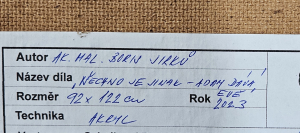 Autor AK. MAL. BORIS JIRKŮ
Název díla „VŠECHNO JE JINAK - ADAM DÁVÁ EVĚ“
Rozměr 92 x 122 cm Rok 2023
Technika AKRYL